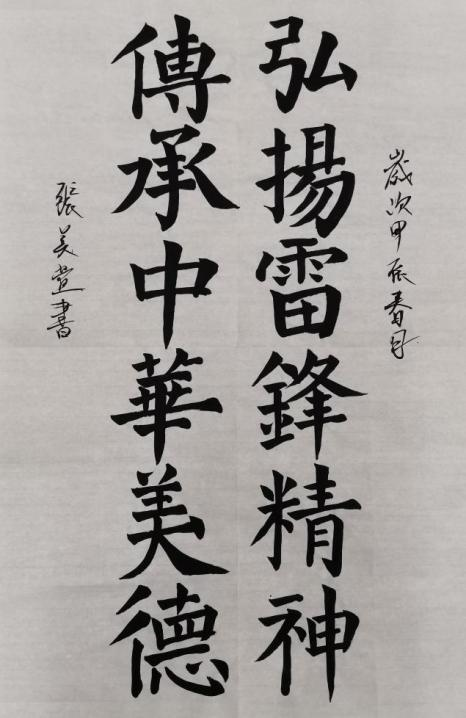 歲次甲辰春月
弘揚雷鋒精神
傳承中華美德
張美萱書